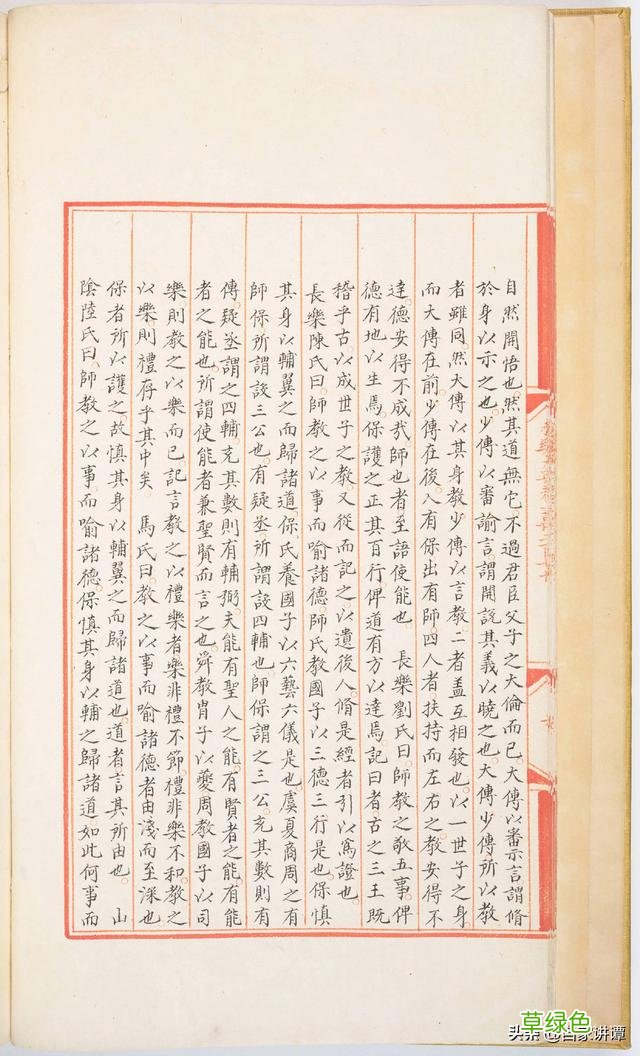 自然開悟也然其道無它不過君臣父子之大倫而已大傅以審示言謂脩
於身以示之也少傅以審諭言謂開說其義以曉之也大傅少傅所以教
者雖同然大傅以其身教少傅以言教二者蓋互相發也以一世子之身
而大傅在前少傅在後入有保出有師四人者扶持而左右之教安得不
達德安得不成哉師也者至語使能也 長樂劉氏曰師教之敬五事俾
德有地以生焉保護之正其百行俾道有方以達焉記曰者古之三王既
稽乎古以成世子之教又從而記之以遺後人脩是經者引以爲證也
長樂陳氏曰師教之以事而喻諸德師氏教國子以三德三行是也保慎
其身以輔翼之而歸諸道保氏養國子以六藝六儀是也虞夏商周之有
師保所謂設三公也有疑丞所謂設四輔也師保謂之三公充其數則有
傅疑丞謂之四輔充其數則有輔弼夫能有聖人之能有賢者之能有能
者之能也所謂使能者兼聖賢而言之也舜教胄子以夔周教國子以司
樂則教之以樂而已記言教之以禮樂者樂非禮不節禮非樂不和教之
以樂則禮存乎其中矣 馬氏曰教之以事而喻諸德者由淺而至深也
保者所以護之故慎其身以輔翼之而歸諸道也道者言其所由也 山
陰陸氏曰師教之以事而喻諸德保慎其身以輔之歸諸道如此何事而
草绿色
头条 @百家讲谭